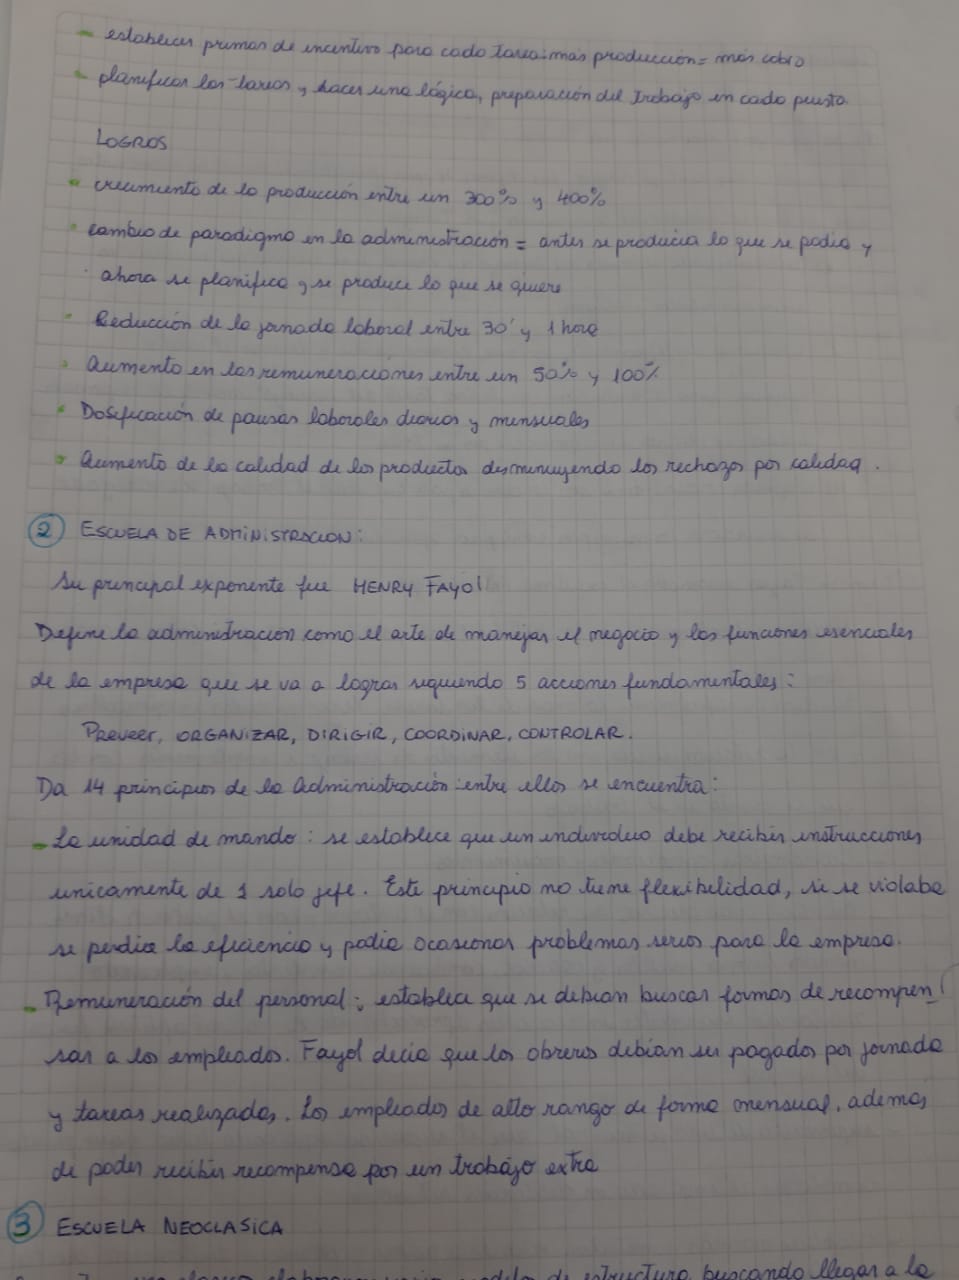 - establecer primas de incentivo para cada tarea: más producción = más cobro
- planificar las tareas y hacer una lógica, preparación del trabajo en cada puesto.
LOGROS
• crecimiento de la producción entre un 300% y 400%
• cambio de paradigma en la administración = antes se producía lo que se podía y
ahora se planifica y se produce lo que se quiere
• Reducción de la jornada laboral entre 30' y 1 hora
• Aumento en las remuneraciones entre un 50% y 100%
• Dosificación de pausas laborales diarias y mensuales
• Aumento de la calidad de los productos disminuyendo los rechazos por calidad.
2 ESCUELA DE ADMINISTRACION:
Su principal exponente fue HENRY FAYOl
Define la administración como el arte de manejar el negocio y las funciones esenciales
de la empresa que se va a lograr siguiendo 5 acciones fundamentales:
Preveer, ORGANIZAR, DIRIGIR, COORDINAR, CONTROLAR.
Da 14 principios de la Administración: entre ellos se encuentra:
- La unidad de mando: se establece que un individuo debe recibir instrucciones
unicamente de 1 solo jefe. Este principio no tiene flexibilidad, si se violaba
se perdia la eficiencia y podia ocasionar problemas serios para la empresa.
- Remuneración del personal: establecia que se debian buscar formas de recompen
sar a los empleados. Fayol decia que los obreros debian ser pagados por jornada
y tareas realizadas. Los empleados de alto rango de forma mensual, ademas
de poder recibir recompensa por un trabajo extra
3 ESCUELA NEOCLASICA
de estructura buscando llegar a la